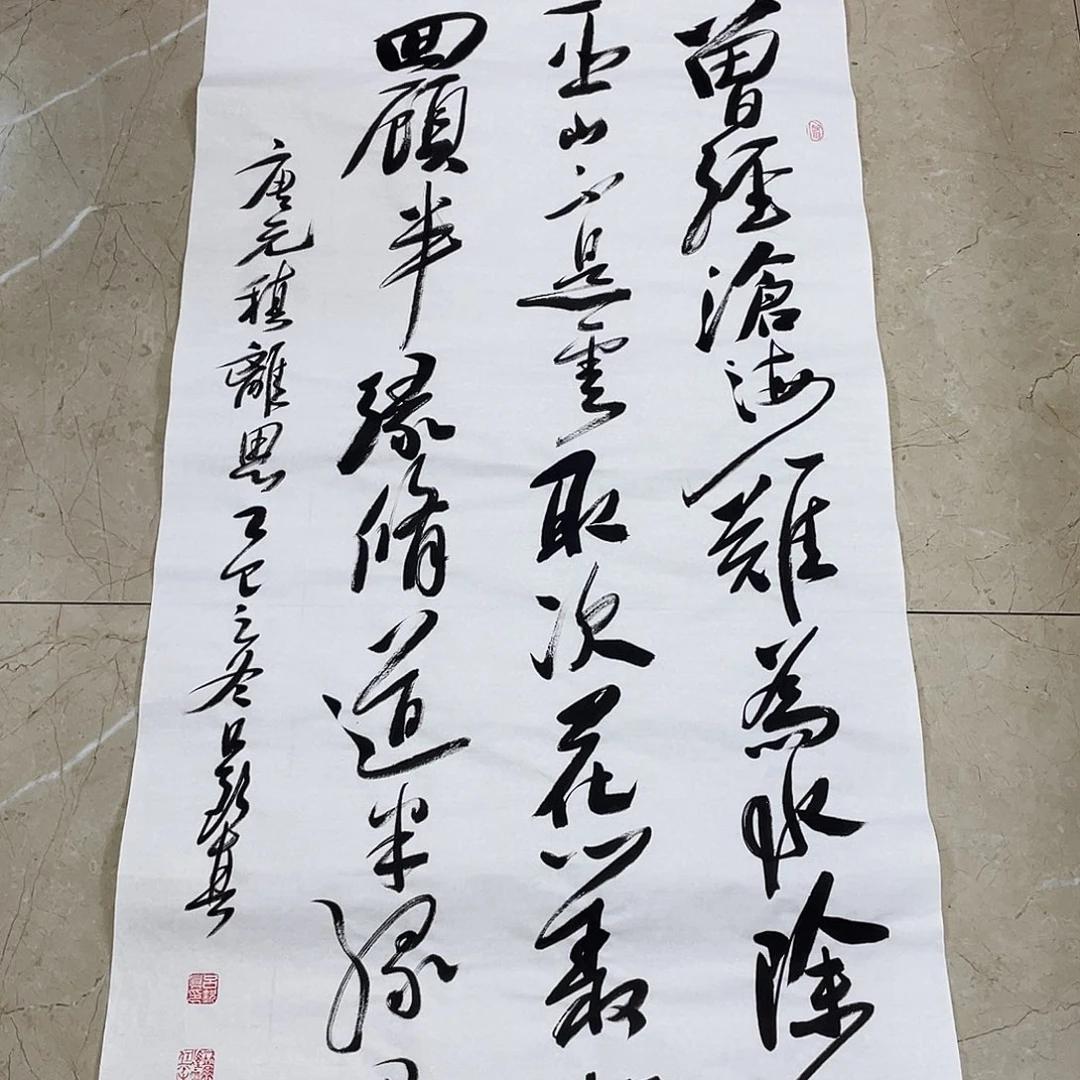 曾經滄海難為水除
巫山不是雲取次花叢
回顧半緣修道半緣
唐元稹離思乙巳之冬呂